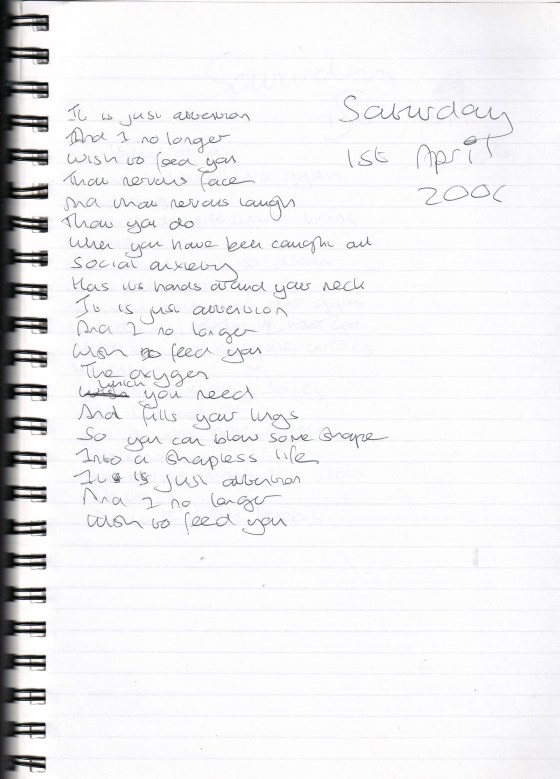 Saturday
1st April
2006
It is just attention
And I no longer
Wish to feed you
That nervous face
And that nervous laugh
That you do
When you have been caught out
Social anxiety
Has its hands around your neck
It is just attention
And I no longer
Wish to feed you
The oxygen
which you need
And fills your lungs
So you can blow some shape
Into a shapless life
It is just attention
And I no longer
Wish to feed you